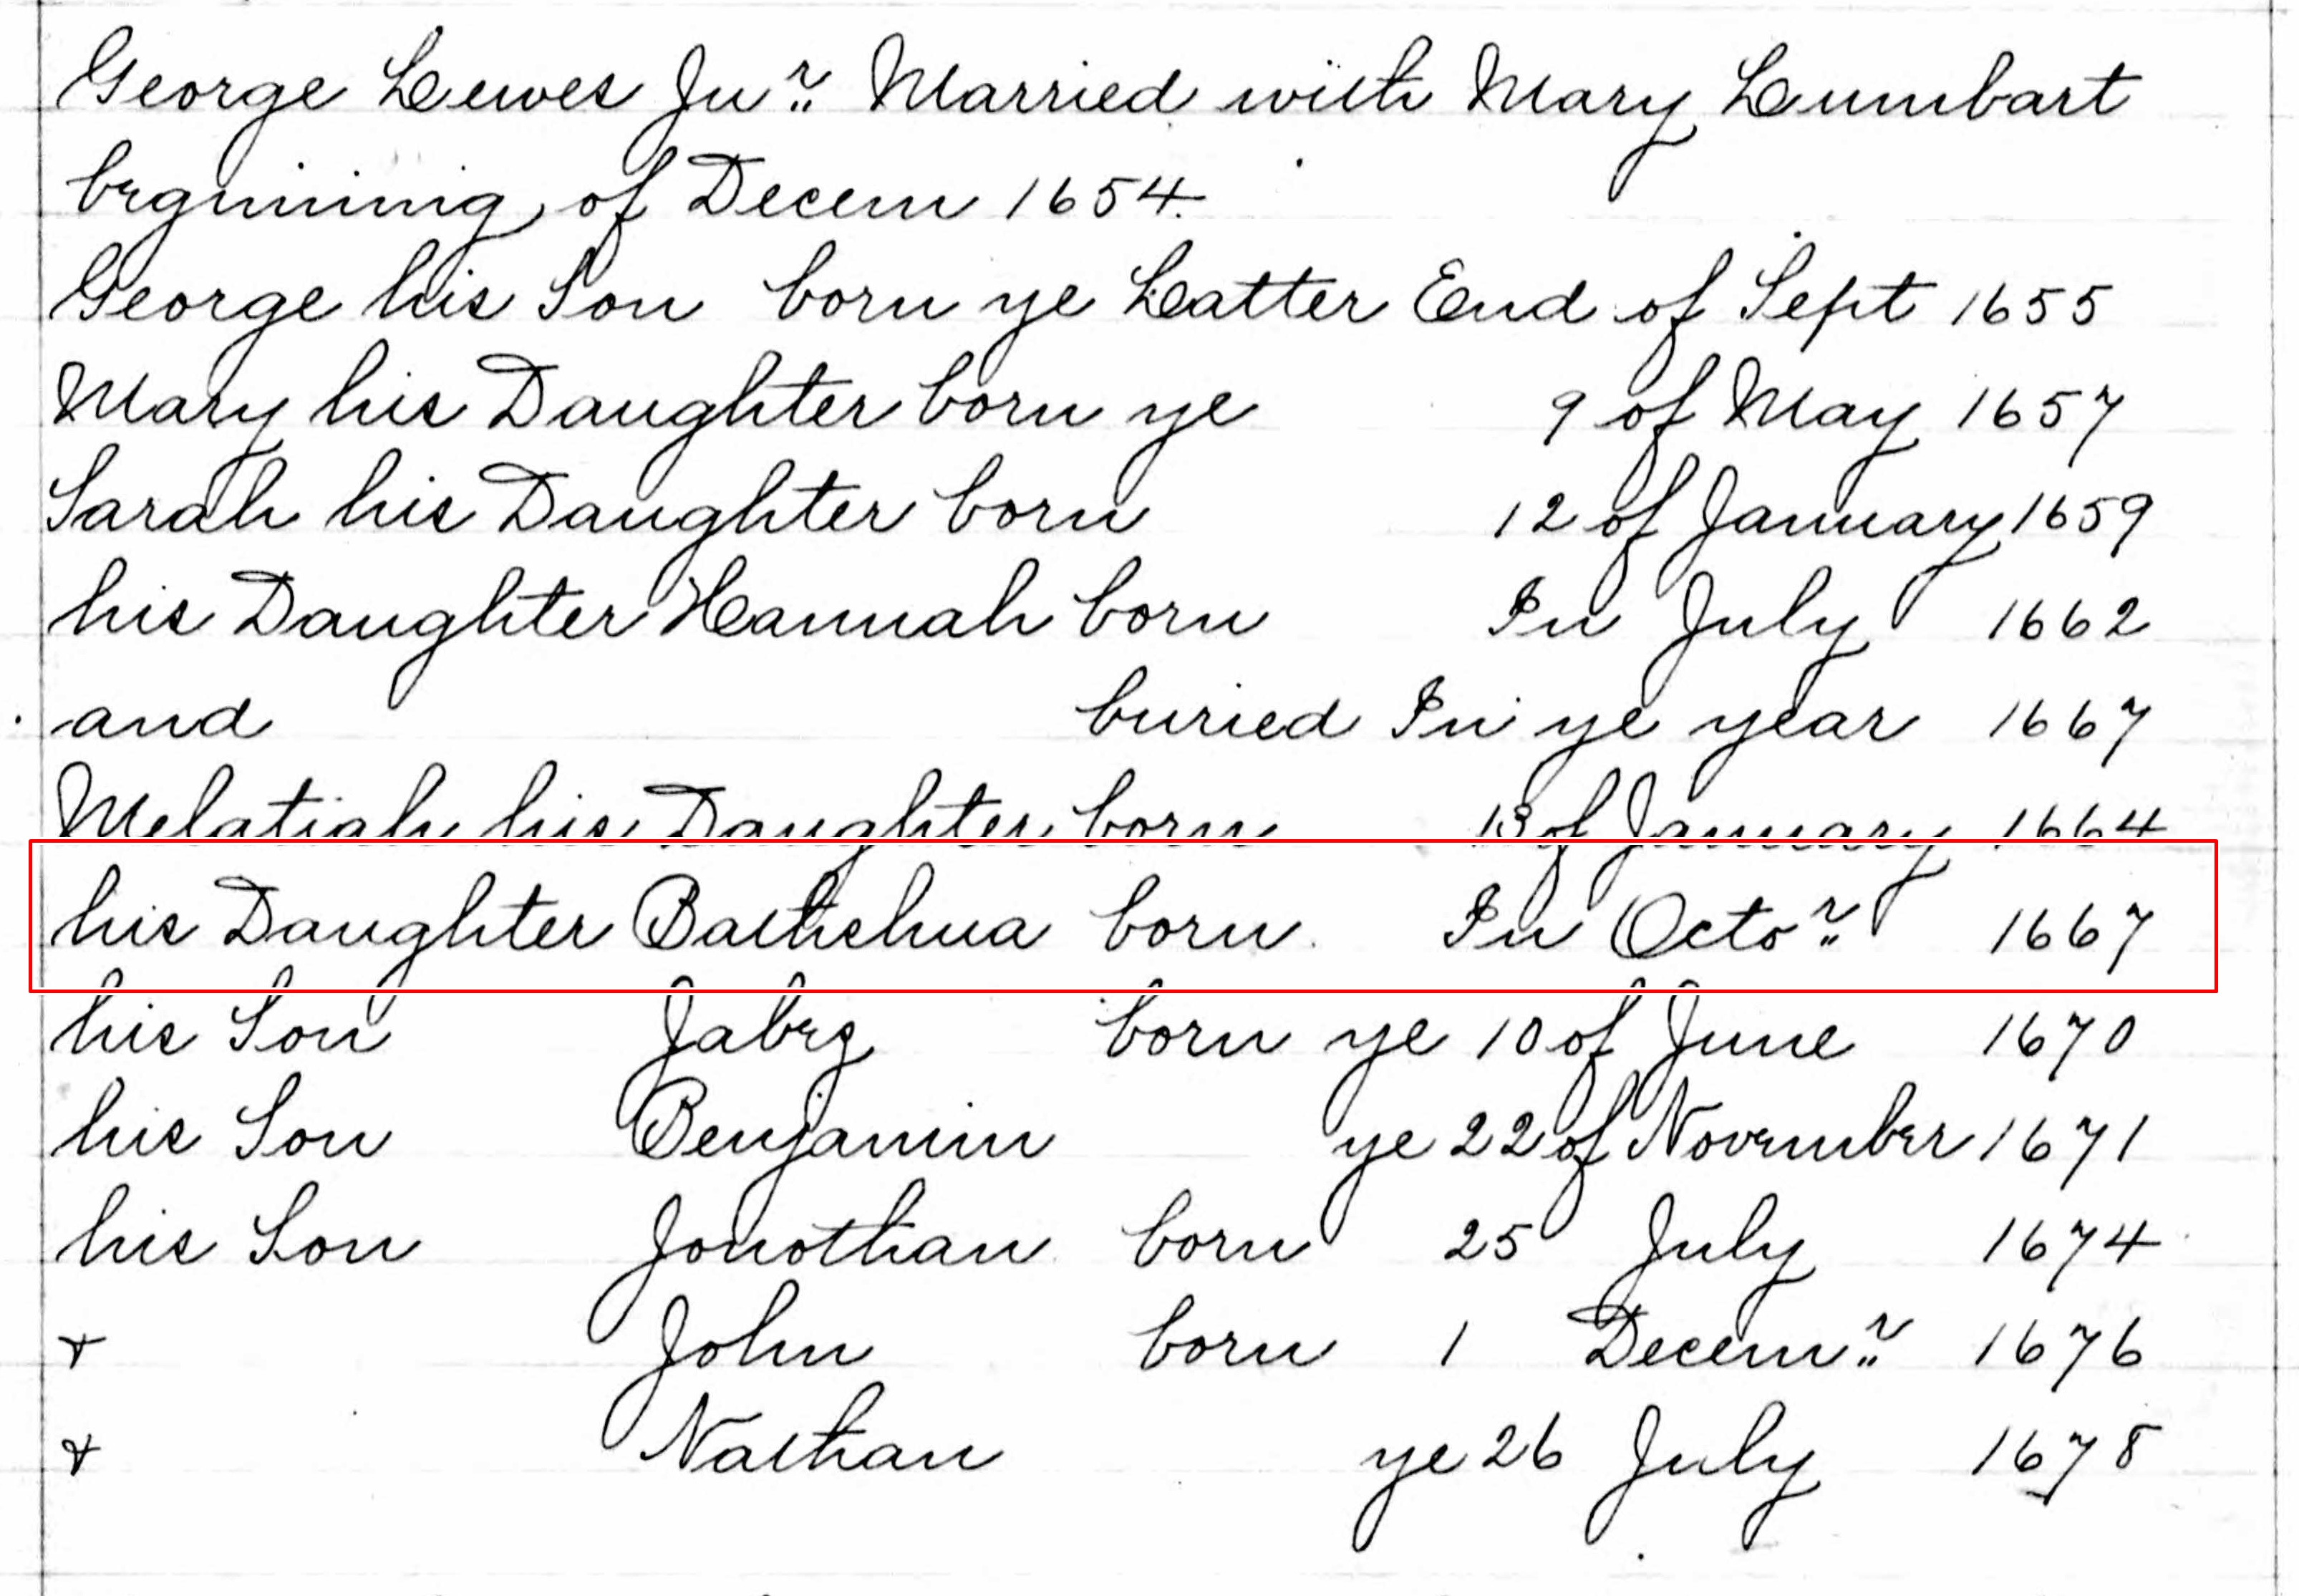 George Lewes Junr Married with Mary Lumbart
beginning of Decem 1654.
George his Son born ye Latter End of Sept 1655
Mary his Daughter born ye 9 of May 1657
Sarah his Daughter born 12 of January 1659
his Daughter Hannah born In July 1662
and buried In ye year 1667
Melatiah his Daughter born 13 of January 1664
his Daughter Bathshua born In Octor 1667
his Son Jabez born ye 10 of June 1670
his Son Benjamin ye 22 of November 1671
his Son Jonothan born 25 July 1674
+ John born 1 Decemr 1676
+ Nathan ye 26 July 1678